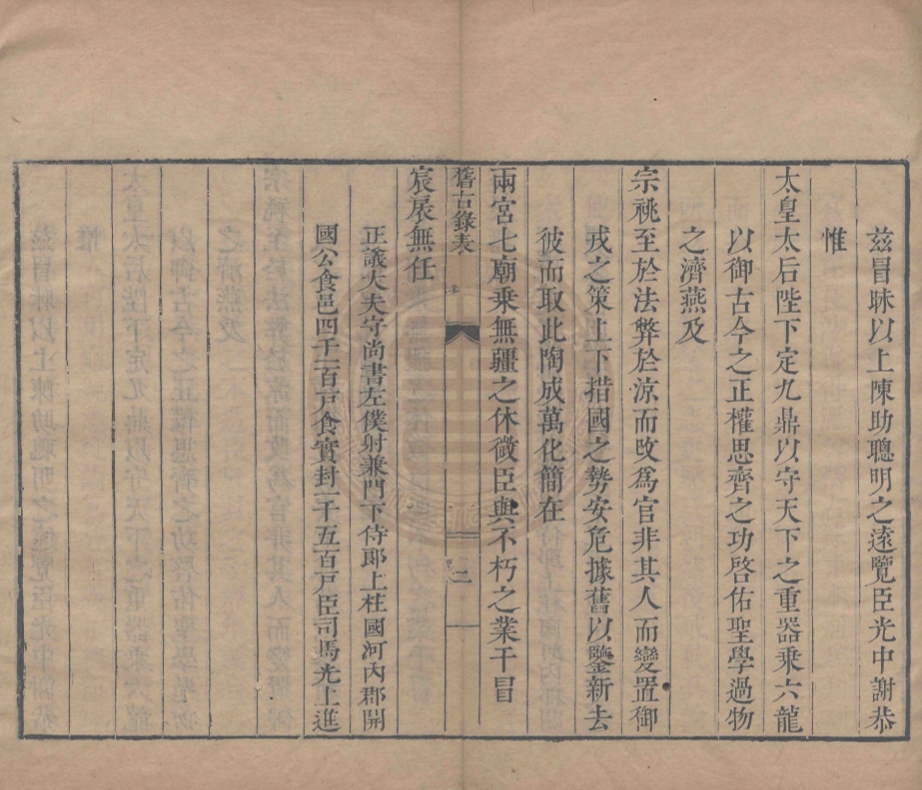 兹冒昧以上陳助聰明之遠覽臣光中謝恭
惟
太皇太后陛下定九鼎以守天下之重器乘六龍
以御古今之正權思齊之功啓佑聖學過物
之濟燕及
宗祧至於法弊於涼而改爲官非其人而變置御
戎之策上下措國之勢安危據舊以鑒新去
彼而取此陶成萬化簡在
兩宫七廟乘無疆之休微臣與不朽之業干冒
宸扆無任
稽古錄表
二
正議大夫守尚書左僕射兼門下侍郎上柱國河內郡開
國公食邑四千二百戸食實封一千五百戸臣司馬光上進